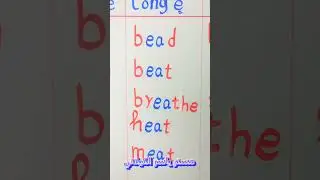 Long ę
bead
beat
breathe
heat
meat